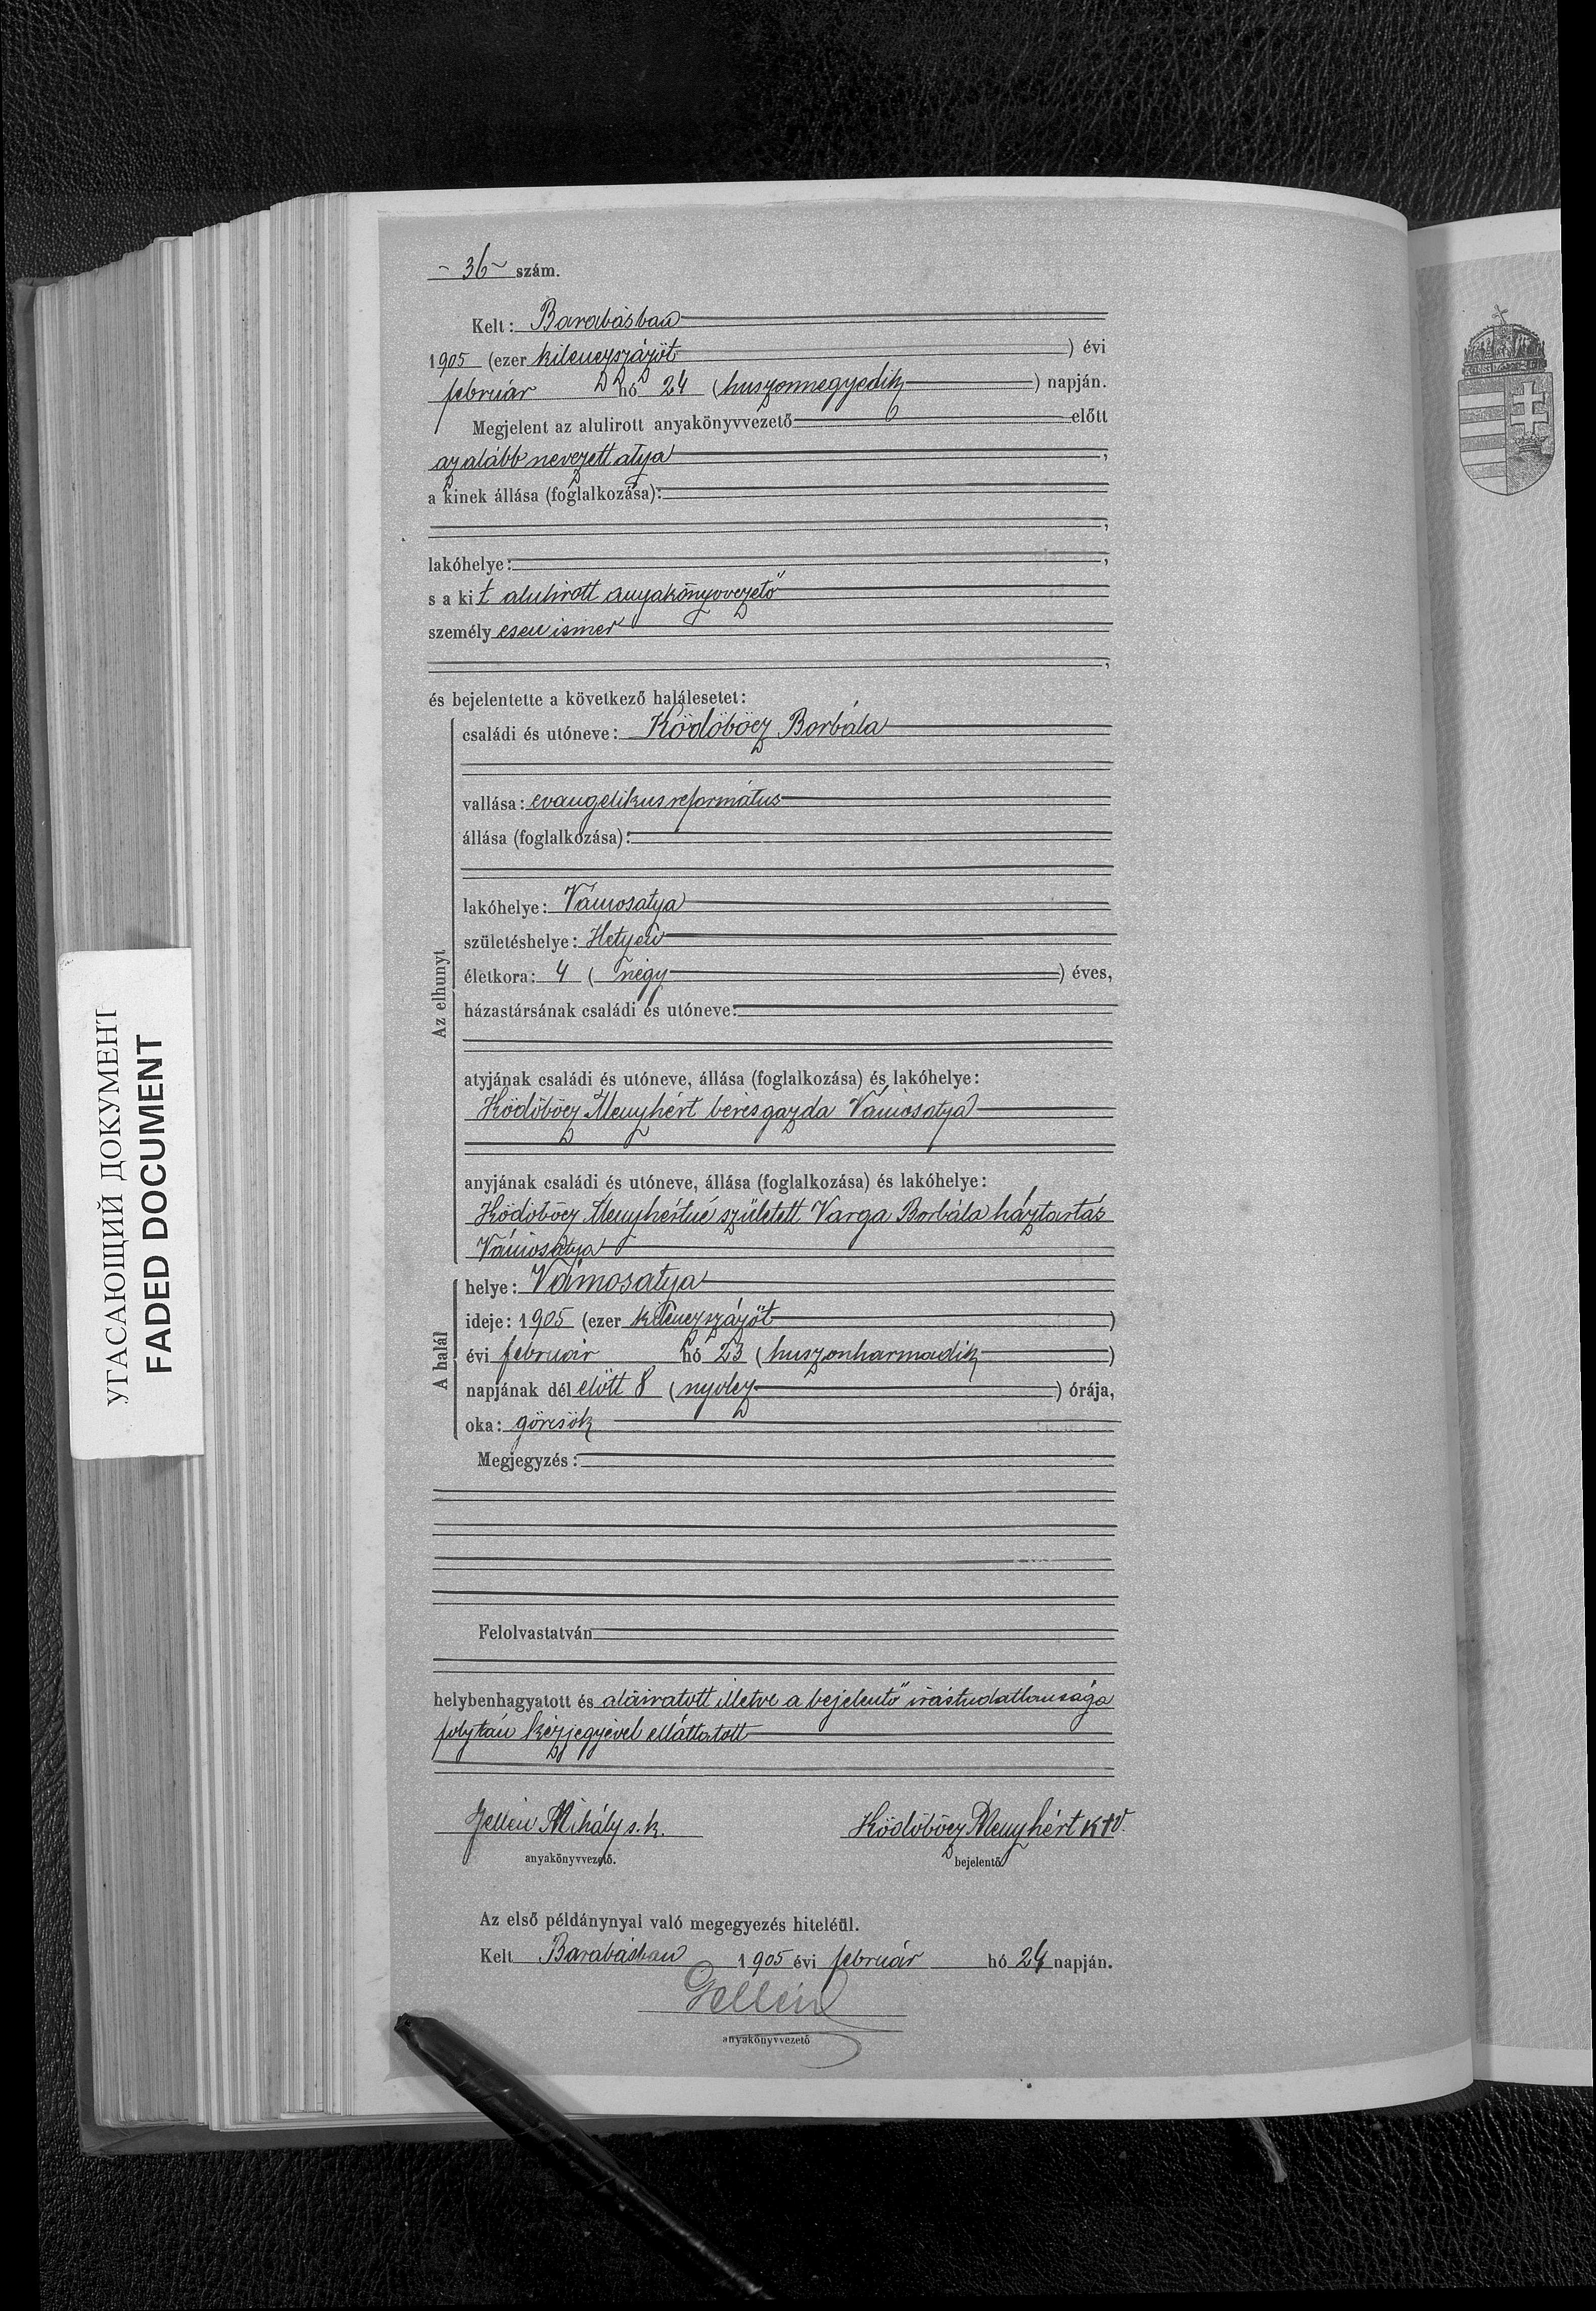 - 36 - szám.
Kelt: Barabásban
1905 (ezer kilenczszázöt) évi
február hó 24 (huszonnegyedik) napján.
Megjelent az alulirott anyakönyvvezető előtt
az alább nevezett atya,
a kinek állása (foglalkozása):
,
lakóhelye: ,
s a kit alulirott anyakönyvvezető
személyesen ismer
,
és bejelentette a következő halálesetet:
Az elhunyt
családi és utóneve: Ködöböcz Borbála
vallása: evangelikus református
állása (foglalkozása):
lakóhelye: Vámosatya
születéshelye: Hetyen
életkora: 4 (négy) éves,
házastársának családi és utóneve:
atyjának családi és utóneve, állása (foglalkozása) és lakóhelye:
Ködöböcz Menyhért béresgazda Vámosatya
anyjának családi és utóneve, állása (foglalkozása) és lakóhelye:
Ködöböcz Menyhértné született Varga Borbála háztartás
Vámosatya
A halál
helye: Vámosatya
ideje: 1905 (ezer kilenczszázöt)
évi február hó 23 (huszonharmadik)
napjának dél előtt 8 (nyolcz) órája,
oka: görcsök
Megjegyzés:
Felolvastatván
helybenhagyatott és aláiratott illetve a bejelentő irástudatlansága
folytán kézjegyével elláttatott
Jellén Mihály s.k.
anyakönyvvezető.
Ködöböcz Menyhért K+V.
bejelentő
Az első példánynyal való megegyezés hiteléül.
Kelt Barabásban 1905 évi február hó 24 napján.
Jellén
anyakönyvvezető
УГАСАЮЩИЙ ДОКУМЕНТ
FADED DOCUMENT